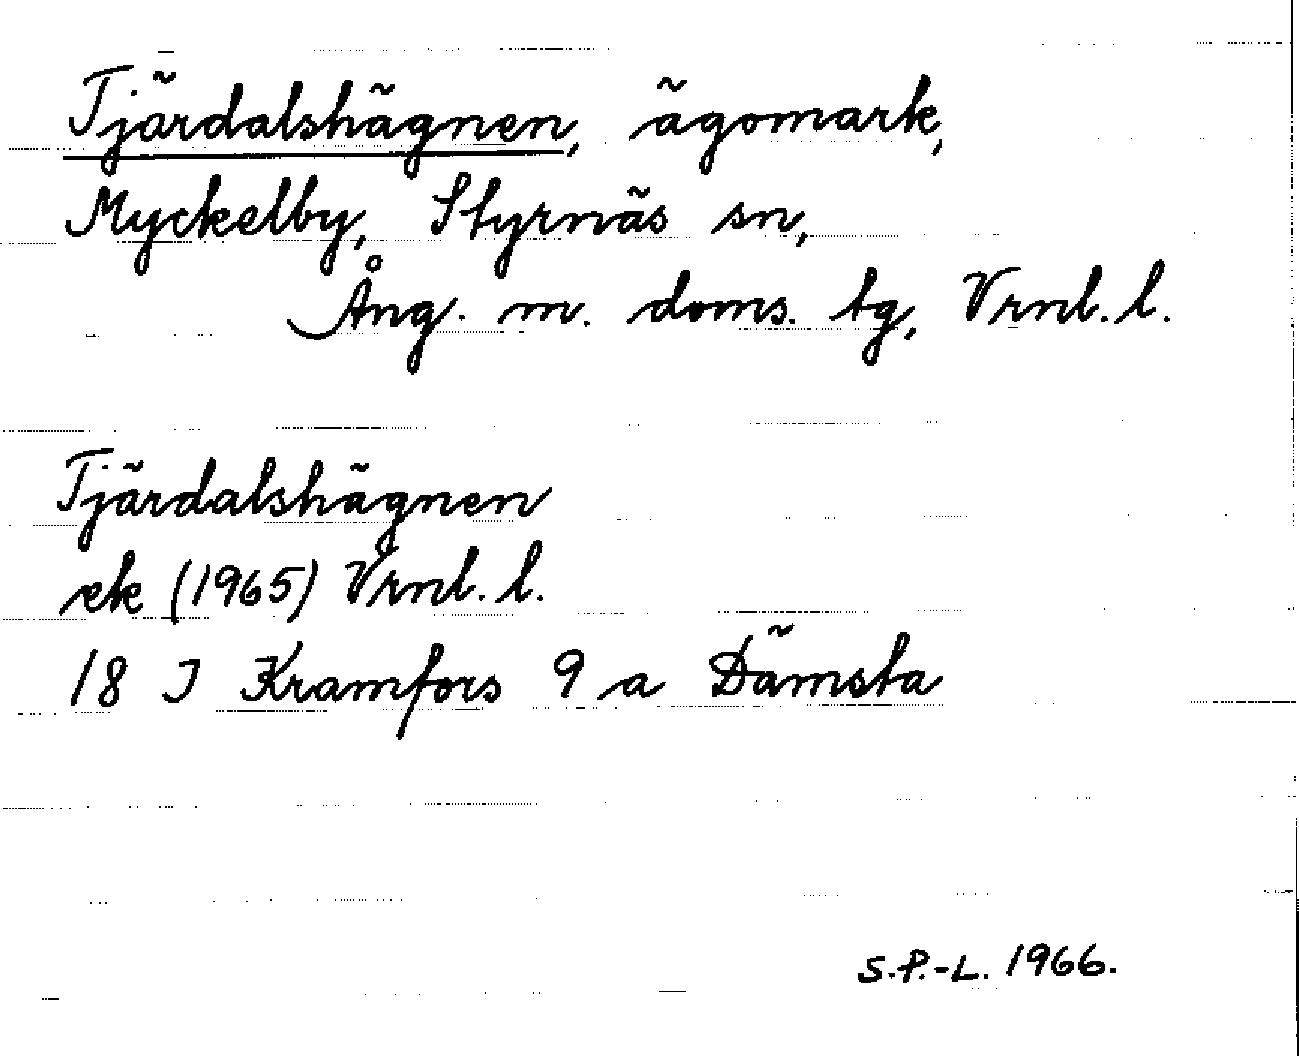 Tjärdalshägnen, ägomark,
Myckelby, Styrnäs sn,
Ång. m. doms. tg, Vrnl. l.
Tjärdalshägnen
ek (1965) Vrnl. l.
18 I Kramfors 9 a Dämsta
S.P.-L. 1966.